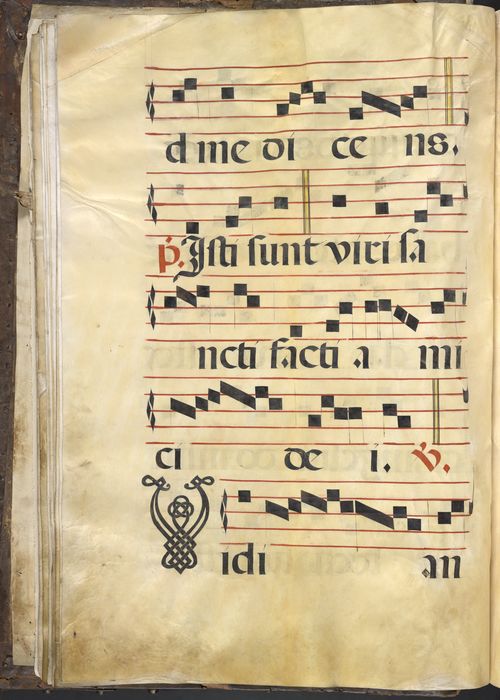 d me di ce ns.
P. Isti sunt viri sa
ncti facti a mi
ci de i. V.
Vidi an